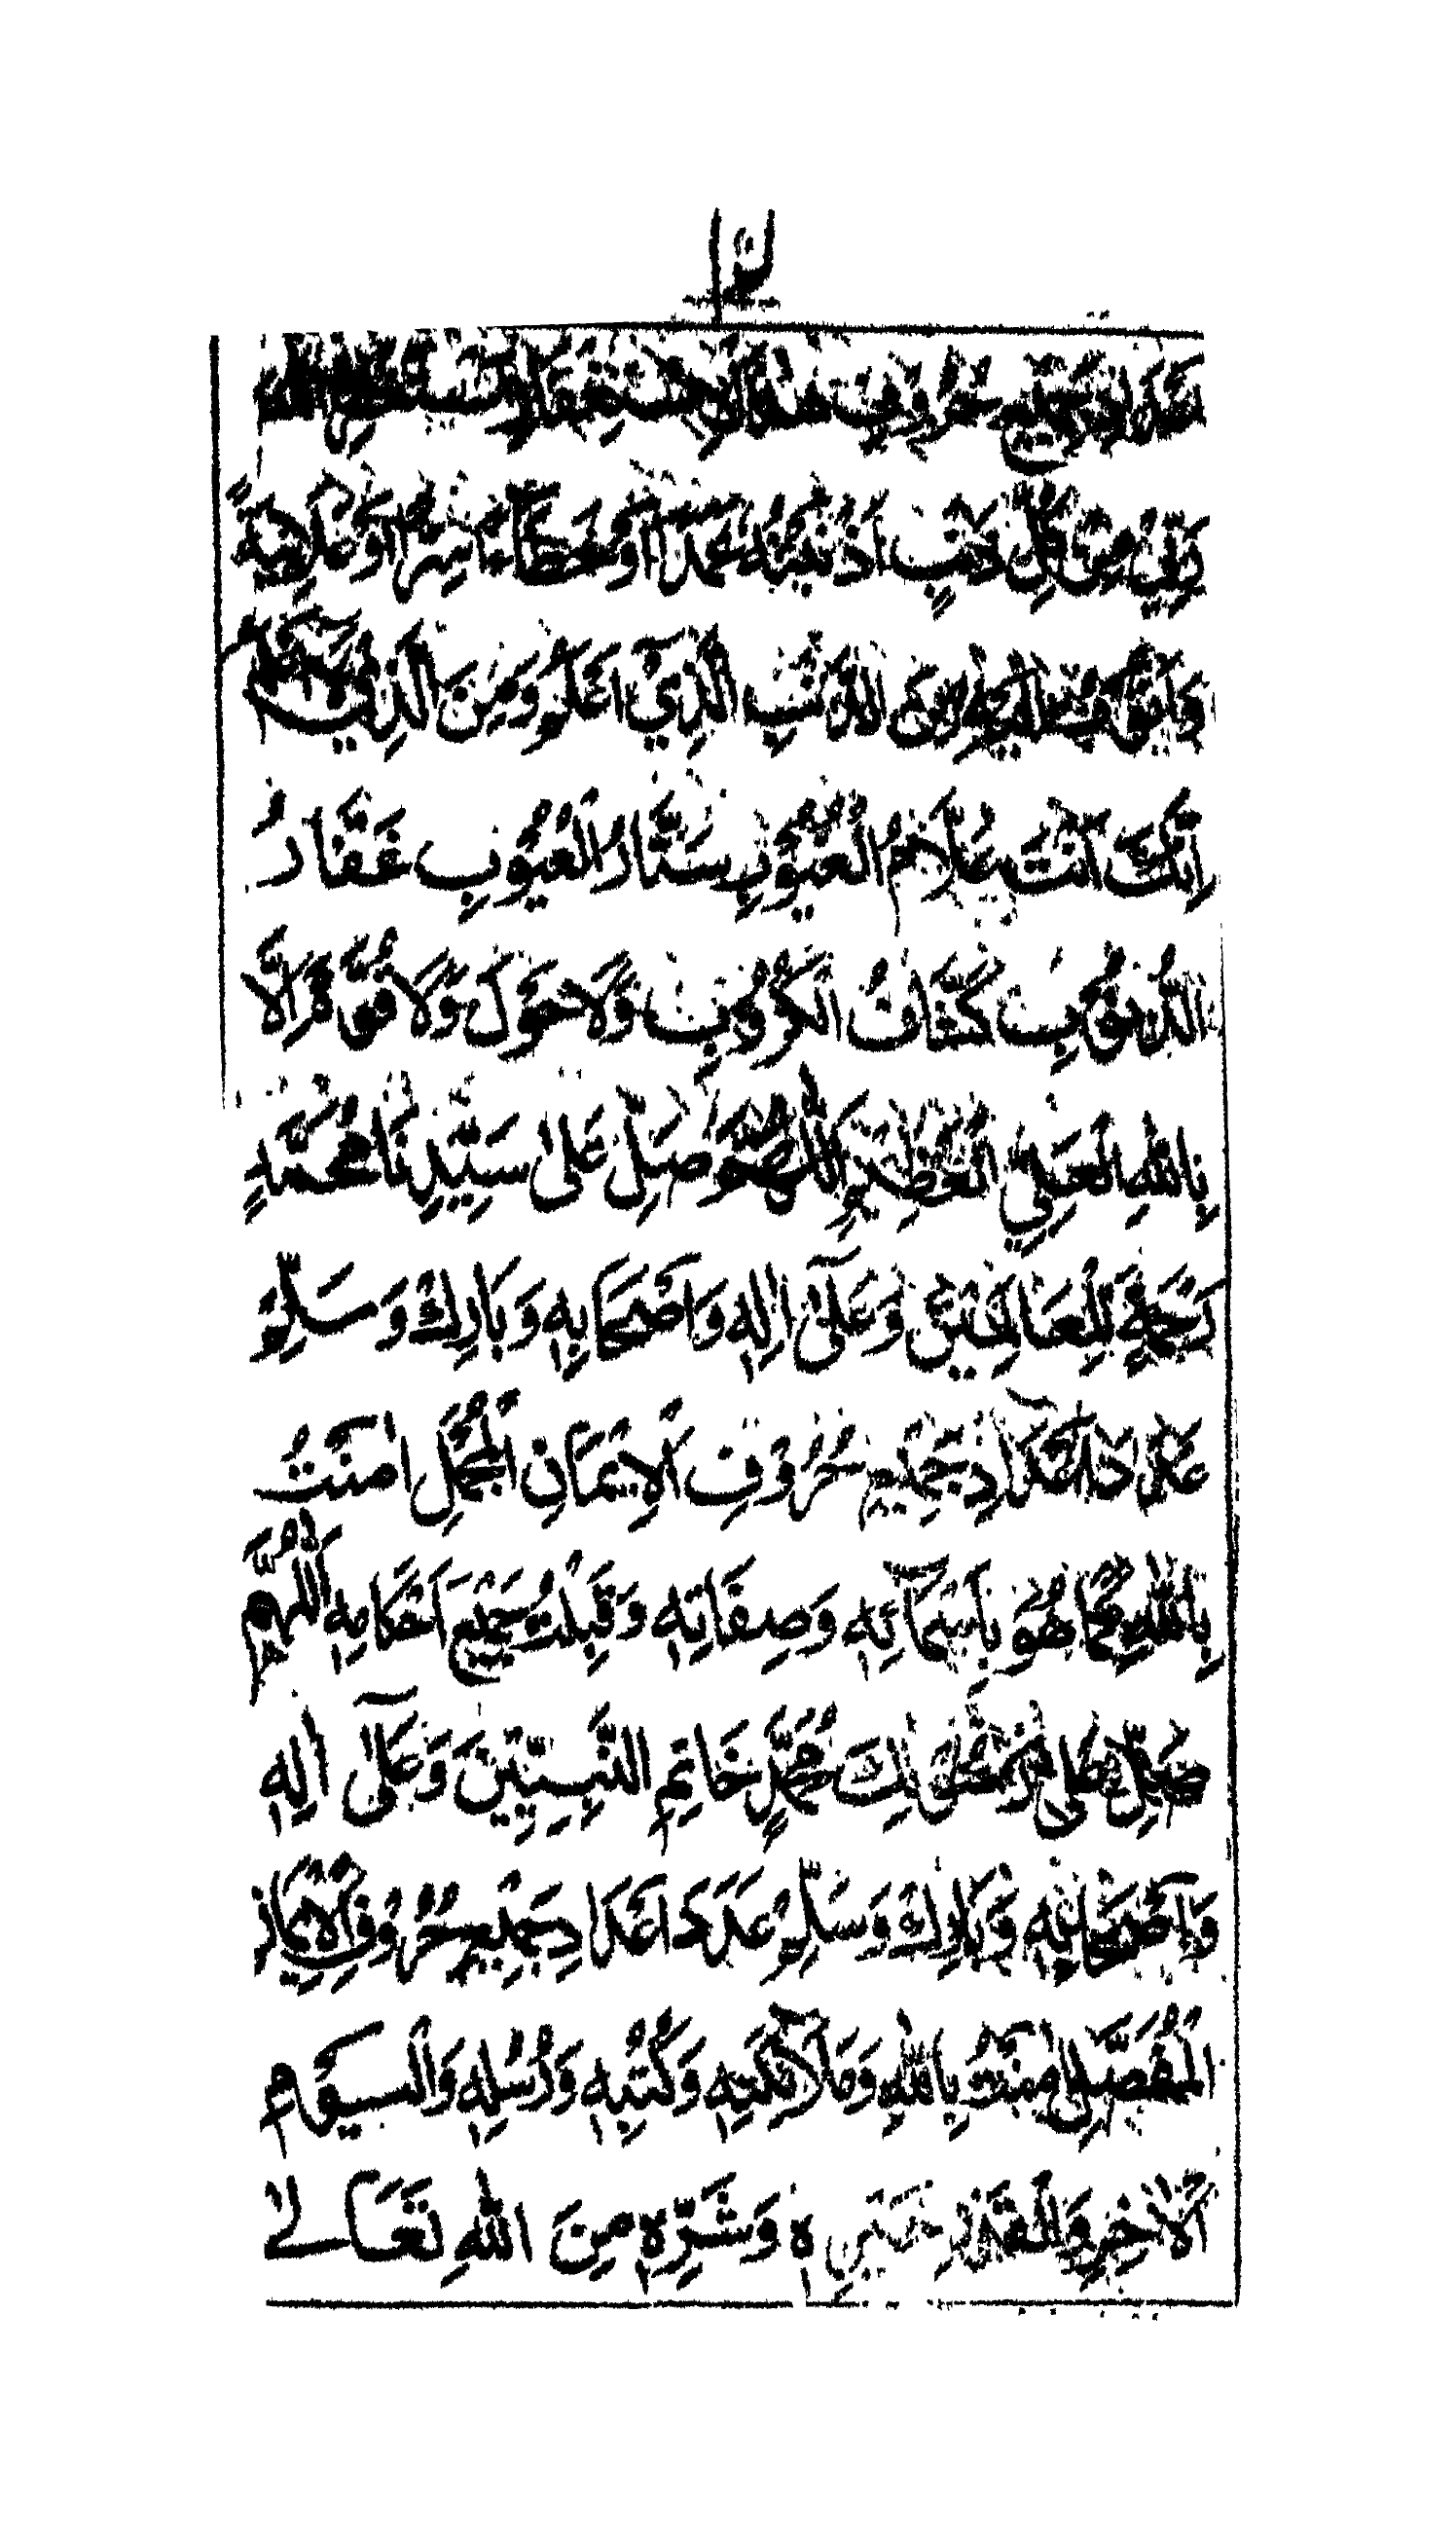 عَدَدَ اَعْدَادِ جَمِيْعِ حُرُوْفِ اَسْتَغْفِرُ اللهَ
رَبِّيْ مِنْ كُلِّ ذَنْبٍ اَذْنَبْتُهٗ عَمَدًا اَوْ خَطَأً سِرًّا اَوْ عَلَانِيَةً
وَاَتُوْبُ اِلَيْهِ مِنَ الذَّنْبِ الَّذِيْٓ اَعْلَمُ وَمِنَ الَّذِيْ
اِنَّكَ اَنْتَ عَلَّامُ الْغُيُوْبِ سَتَّارُ الْعُيُوْبِ غَفَّارُ
الذُّنُوْبِ كَشَّافُ الْكُرُوْبِ وَلَا حَوْلَ وَلَا قُوَّةَ اِلَّا
بِاللهِ الْعَلِيِّ الْعَظِيْمِ اَللّٰهُمَّ صَلِّ عَلٰى سَيِّدِنَا مُحَمَّدٍ
رَحْمَةٍ لِّلْعَالَمِيْنَ وَعَلٰٓى اٰلِهٖ وَاَصْحَابِهٖ وَبَارِكْ وَسَلِّمْ
عَدَدَ اَعْدَادِ جَمِيْعِ حُرُوْفِ اَلْاِيْمَانِ الْمُجْمَلِ اٰمَنْتُ
بِاللهِ كَمَا هُوَ بِاَسْمَآئِهٖ وَصِفَاتِهٖ وَقَبِلْتُ جَمِيْعَ اَحْكَامِهٖ اَللّٰهُمَّ
صَلِّ عَلٰى مُحَمَّدٍ خَاتَمِ النَّبِيِّيْنَ وَعَلٰٓى اٰلِهٖ
وَاَصْحَابِهٖ وَبَارِكْ وَسَلِّمْ عَدَدَ اَعْدَادِ جَمِيْعِ حُرُوْفِ الْاِيْمَانِ
الْمُفَصَّلِ اٰمَنْتُ بِاللهِ وَمَلَآئِكَتِهٖ وَكُتُبِهٖ وَرُسُلِهٖ وَالْيَوْمِ
الْاٰخِرِ وَالْقَدْرِ خَيْرِهٖ وَشَرِّهٖ مِنَ اللهِ تَعَالٰى